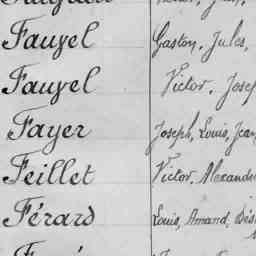 Fauvel Gaston, Jules,
Fauvel Victor, Josep
Fayer Joseph, Louis, Jean
Feillet Victor, Alexandr
Férard Louis, Amand, Dés